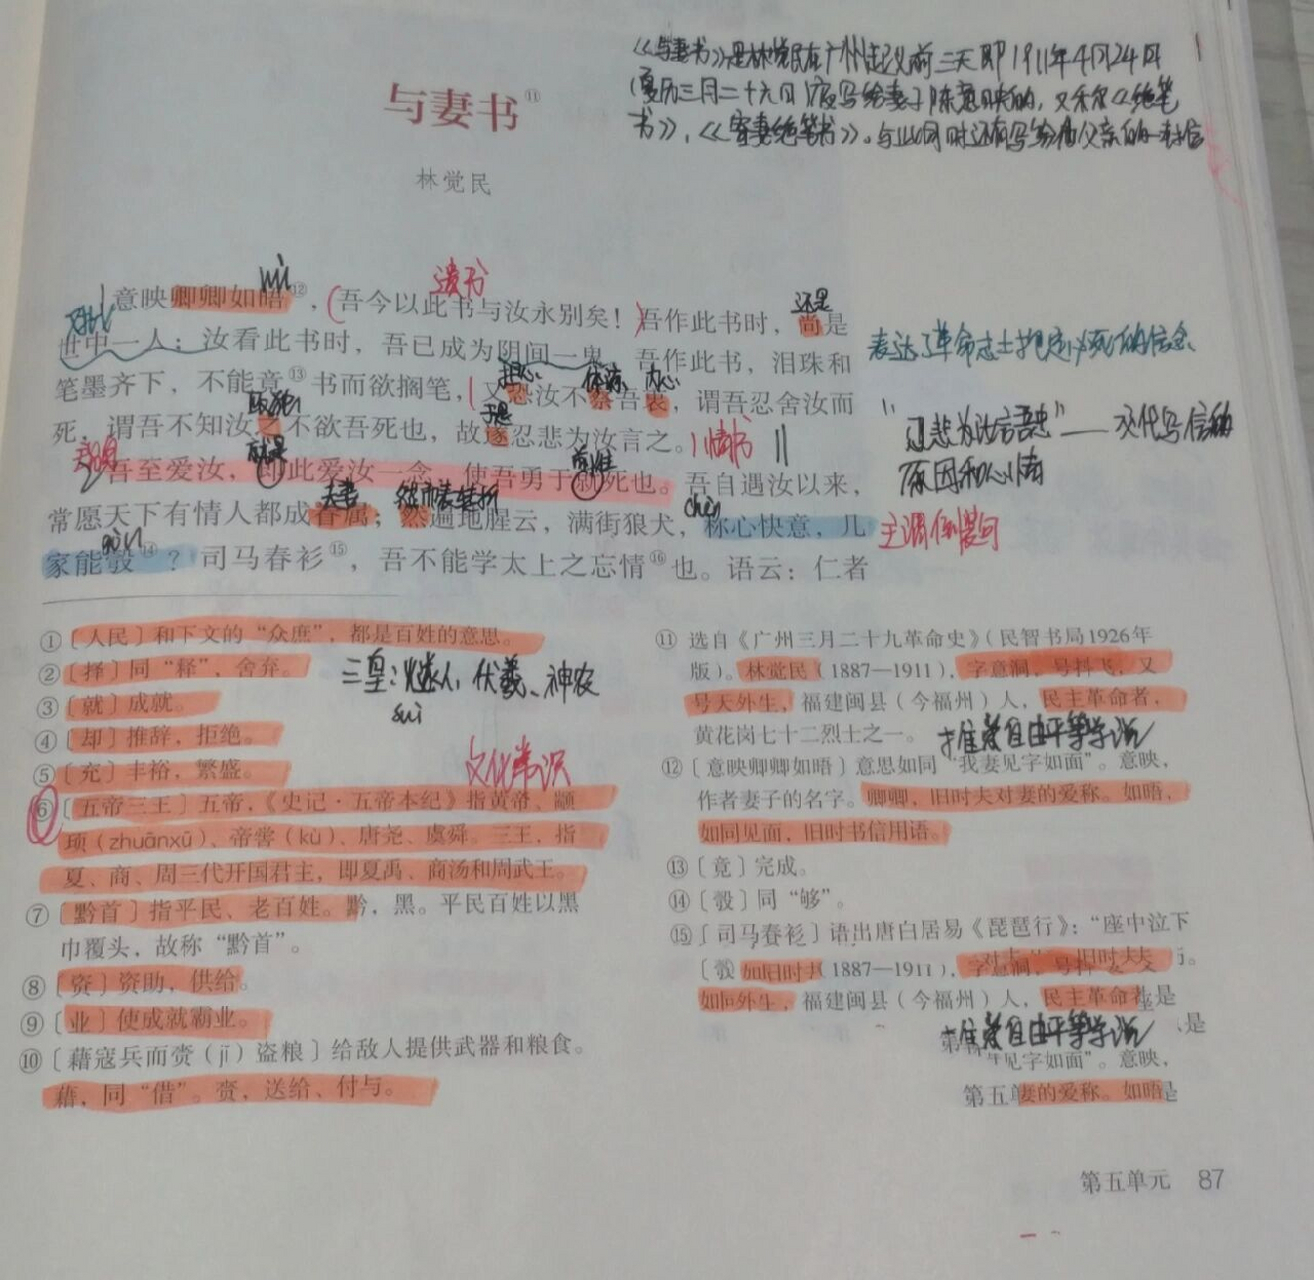 《与妻书》是林觉民在广州起义前三天即1911年4月24日
(夏历三月二十六日)夜写给妻子陈意映的,又禾尔《绝笔
书》,《寄妻绝笔书》。与此同时还有写给他父亲的一封信
与妻书⑪
林觉民
遗书
意映卿卿如晤⑫,吾今以此书与汝永别矣!吾作此书时,尚是
还是
对比
世中一人;汝看此书时,吾已成为阴间一鬼。吾作此书,泪珠和
表达了革命志士抱定必死的信念
笔墨齐下,不能竟⑬书而欲搁笔,又恐汝不察吾衷,谓吾忍舍汝而
担心
体谅
内心
死,谓吾不知汝之不欲吾死也,故遂忍悲为汝言之。
于是
情书
"忍悲为汝言之"——交代写信的
原因和心情
吾至爱汝,即此爱汝一念,使吾勇于就死也。吾自遇汝以来,
就是
常愿天下有情人都成眷属;然遍地腥云,满街狼犬,称心快意,几
chèn
主谓倒装句
家能彀⑭?司马春衫⑮,吾不能学太上之忘情⑯也。语云:仁者
gòu
①〔人民〕和下文的“众庶”,都是百姓的意思。
②〔择〕同“释”,舍弃。
三皇:燧人、伏羲、神农
sui
③〔就〕成就。
④〔却〕推辞,拒绝。
⑤〔充〕丰裕,繁盛。
文化常识
⑥〔五帝三王〕五帝,《史记·五帝本纪》指黄帝、颛
顼(zhuānxū)、帝喾(kù)、唐尧、虞舜。三王,指
夏、商、周三代开国君主,即夏禹、商汤和周武王。
⑦〔黔首〕指平民、老百姓。黔,黑。平民百姓以黑
巾覆头,故称“黔首”。
⑧〔资〕资助,供给。
⑨〔业〕使成就霸业。
⑩〔藉寇兵而赍(jī)盗粮〕给敌人提供武器和粮食。
藉,同“借”。赍,送给、付与。
⑪ 选自《广州三月二十九革命史》(民智书局1926年
版)。林觉民(1887—1911),字意洞,号抖飞,又
号天外生,福建闽县(今福州)人,民主革命者,
黄花岗七十二烈士之一。
推崇自由平等学说
⑫〔意映卿卿如晤〕意思如同“我妻见字如面”。意映,
作者妻子的名字。卿卿,旧时夫对妻的爱称。如晤,
如同见面,旧时书信用语。
⑬〔竟〕完成。
⑭〔彀〕同“够”。
⑮〔司马春衫〕语出唐白居易《琵琶行》:“座中泣下
〔彀 如旧时 (1887—1911),字意洞,号抖
如同外生,福建闽县(今福州)人,民主革命者是
推崇自由平等学说
见字如面”。意映,
第五 妻的爱称。如晤是
第五单元 87